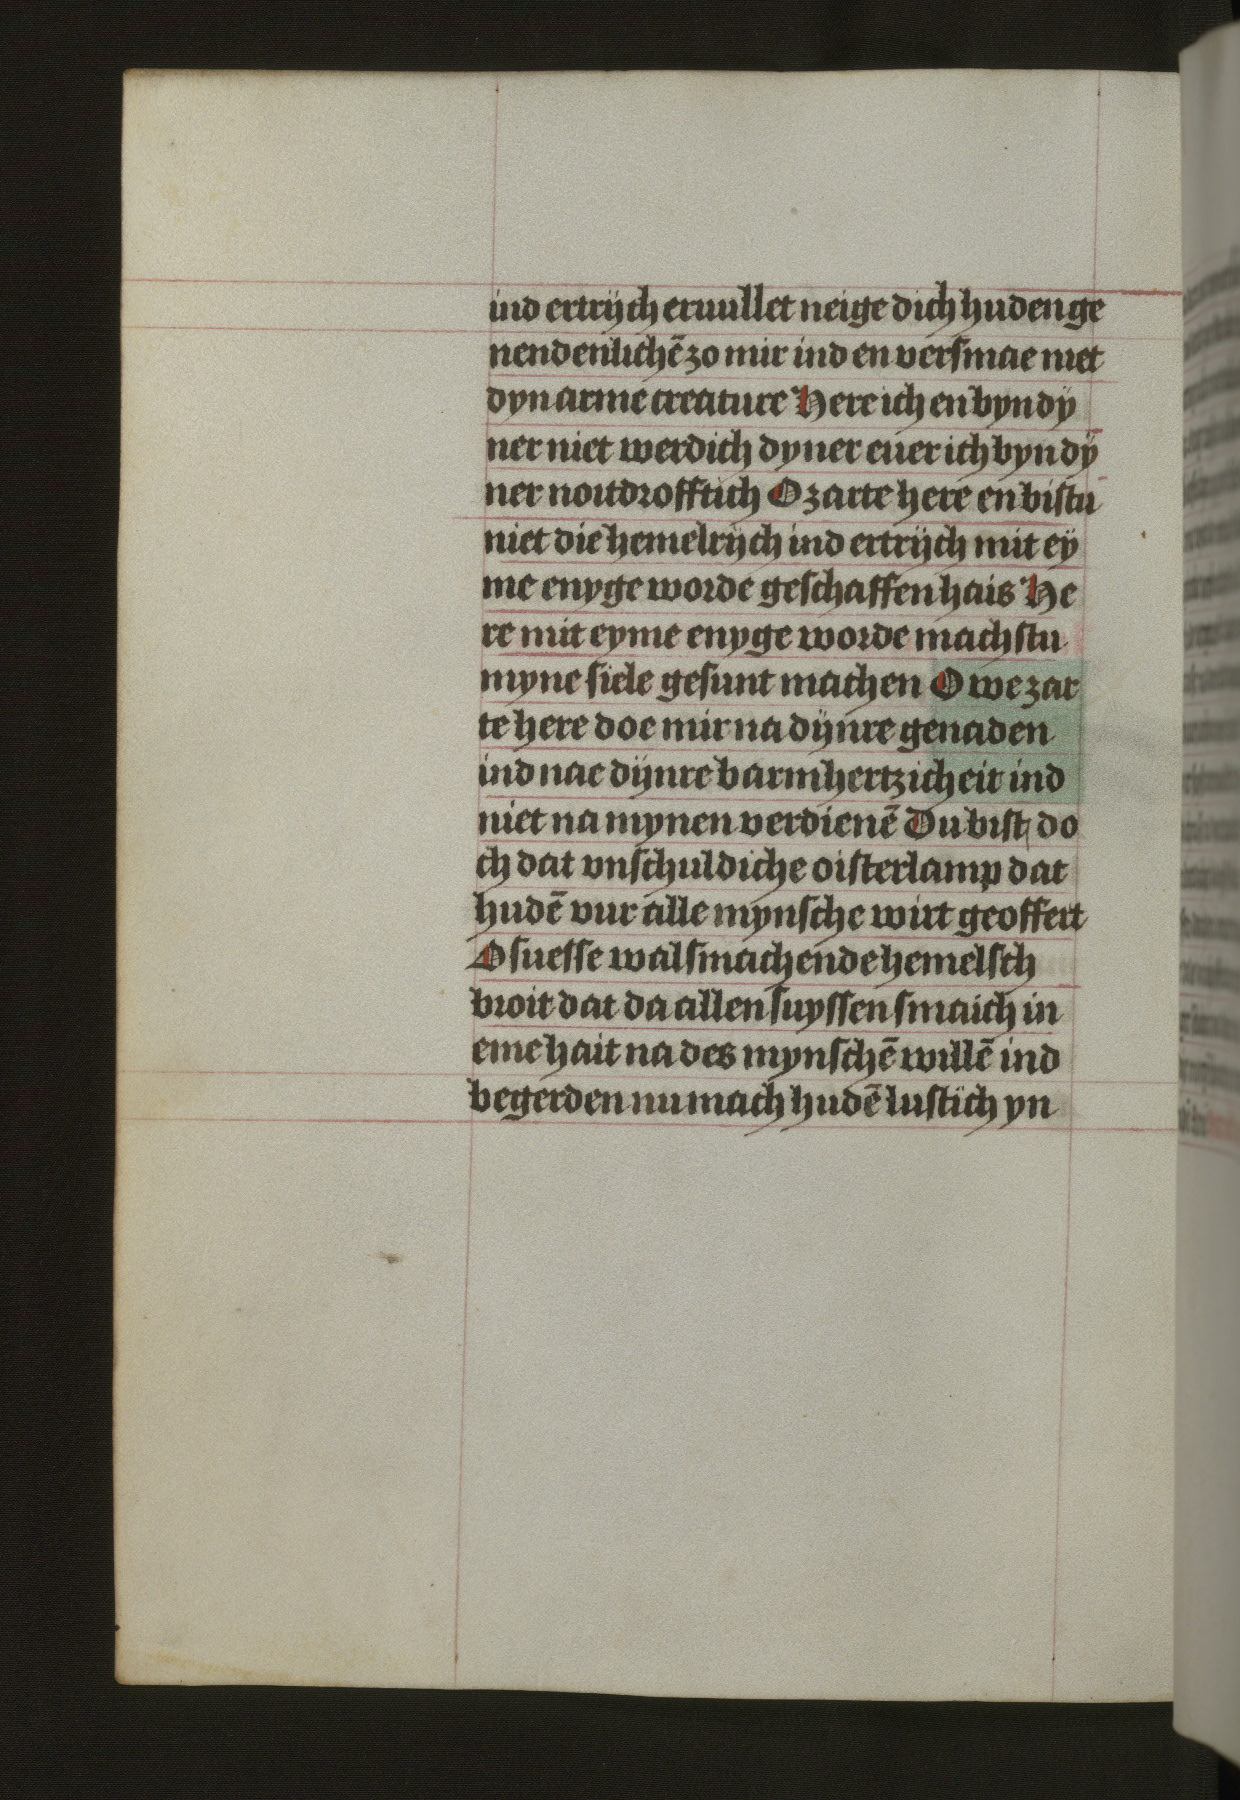 ind ertrijch eruullet neige dich huden ge
nendenlichē zo mir ind en versmae niet
dyn arme creature Here ich en byn dÿ
ner niet werdich dyner euer ich byn dÿ
ner noitdrofftich O zarte here en bistu
niet die hemelrijch ind ertrijch mit eÿ
me enyge worde geschaffen hais He
re mit eyme enyge worde machstu
myne siele gesunt machen O we zar
te here doe mir na dijnre genaden
ind nae dijnre barmhertzicheit ind
niet na mynen verdienē Du bist do
ch dat vnschuldiche oisterlamp dat
hudē vur alle mynsche wirt geoffert
O suesse walsmachende hemelsch
broit dat da allen suyssen smaich in
eme hait na des mynschē willē ind
begerden nu mach hudē lustich yn